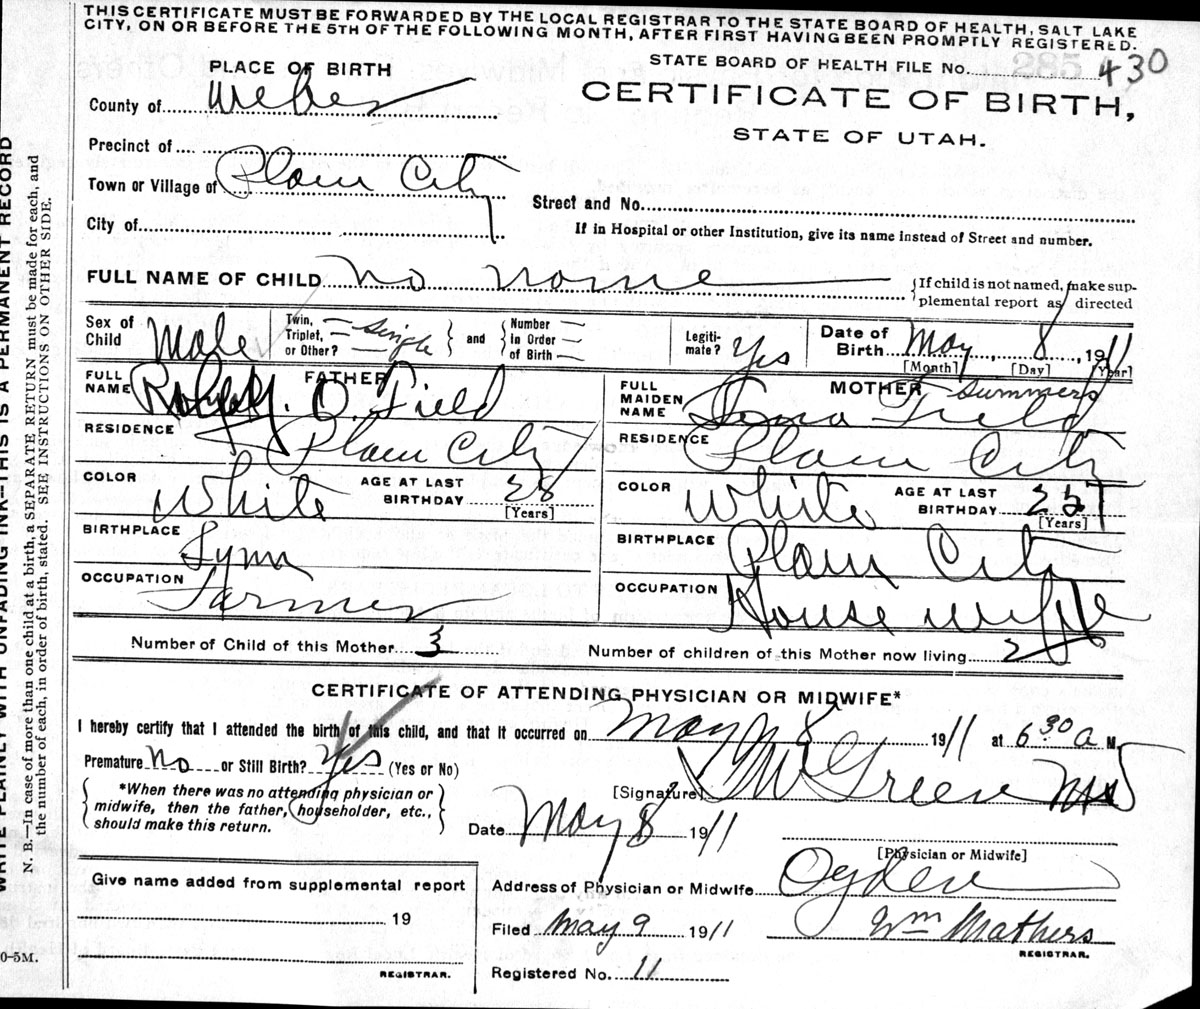 THIS CERTIFICATE MUST BE FORWARDED BY THE LOCAL REGISTRAR TO THE STATE BOARD OF HEALTH, SALT LAKE
CITY, ON OR BEFORE THE 5TH OF THE FOLLOWING MONTH, AFTER FIRST HAVING BEEN PROMPTLY REGISTERED.
PLACE OF BIRTH
STATE BOARD OF HEALTH FILE No. 285 430
County of Weber
CERTIFICATE OF BIRTH,
STATE OF UTAH.
Precinct of
Town or Village of Plain City
Street and No.
City of
If in Hospital or other Institution, give its name instead of Street and number.
FULL NAME OF CHILD No name
{If child is not named, make sup-
plemental report as directed
Sex of Child Male
Twin, Triplet, or Other? Single } and { Number In Order of Birth
Legiti-mate? Yes
Date of Birth May 8, 1911
[Month] [Day] [Year]
FATHER
FULL NAME O. Field
RESIDENCE Plain City
COLOR White AGE AT LAST BIRTHDAY 28
[Years]
BIRTHPLACE Lynn
OCCUPATION Farmer
MOTHER
FULL MAIDEN NAME Field Summers
RESIDENCE Plain City
COLOR White AGE AT LAST BIRTHDAY 25
[Years]
BIRTHPLACE Plain City
OCCUPATION House wife
Number of Child of this Mother 3 Number of children of this Mother now living 2
CERTIFICATE OF ATTENDING PHYSICIAN OR MIDWIFE*
I hereby certify that I attended the birth of this child, and that it occurred on May 8 1911 at 6 30 a M.
Premature No or Still Birth? Yes (Yes or No)
{ *When there was no attending physician or
midwife, then the father, householder, etc.,
should make this return. }
[Signature] Green MD
Date May 8 1911
[Physician or Midwife]
Give name added from supplemental report
19
REGISTRAR.
Address of Physician or Midwife Ogden
Filed May 9 1911 Wm Mathers
REGISTRAR.
Registered No. 11
0-5M.
WRITE PLAINLY WITH UNFADING INK—THIS IS A PERMANENT RECORD
N. B.—In case of more than one child at a birth, a SEPARATE RETURN must be made for each, and
the number of each, in order of birth, stated. SEE INSTRUCTIONS ON OTHER SIDE.